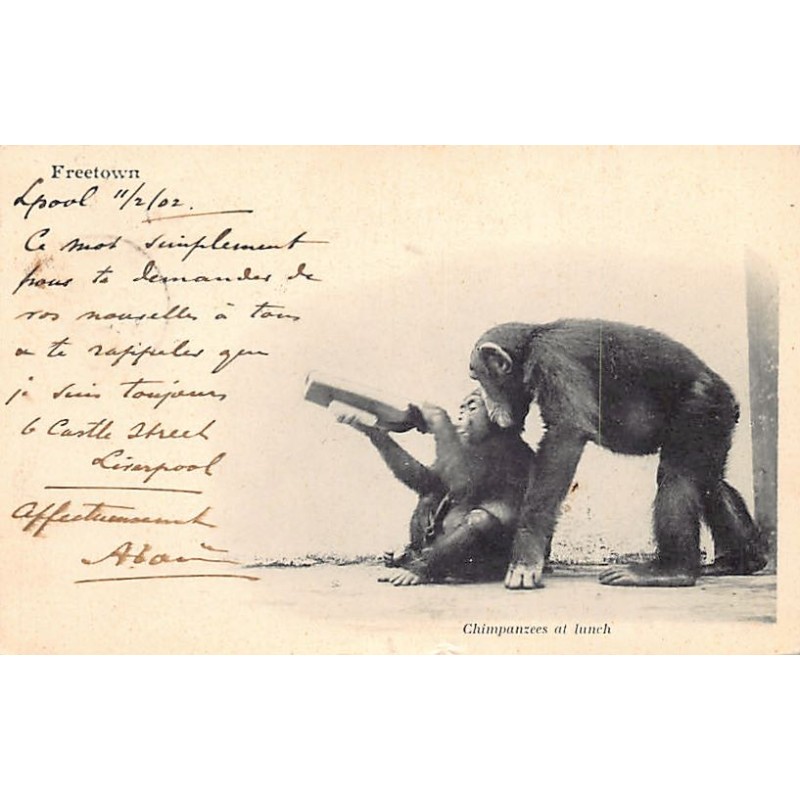 Freetown
Lpool 11/2/02.
Ce mot simplement
pour te demander de
vos nouvelles à tous
a te rappeler que
je suis toujours
6 Castle Street
Liverpool
Affectueusement
Chimpanzees at lunch